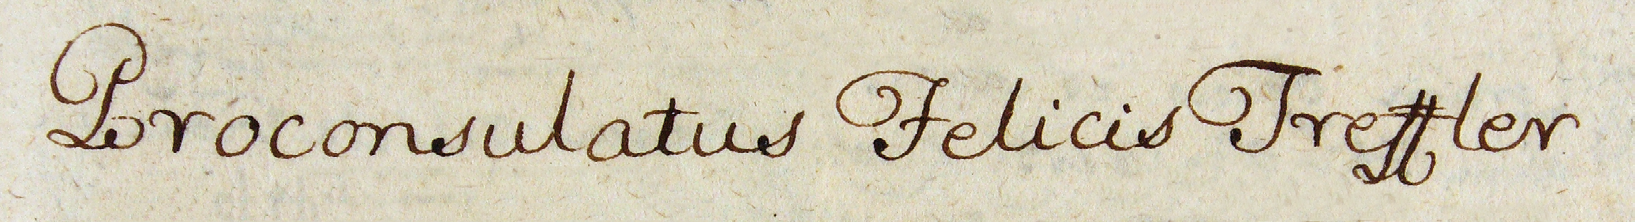 Proconsulatus Felicis Treffler